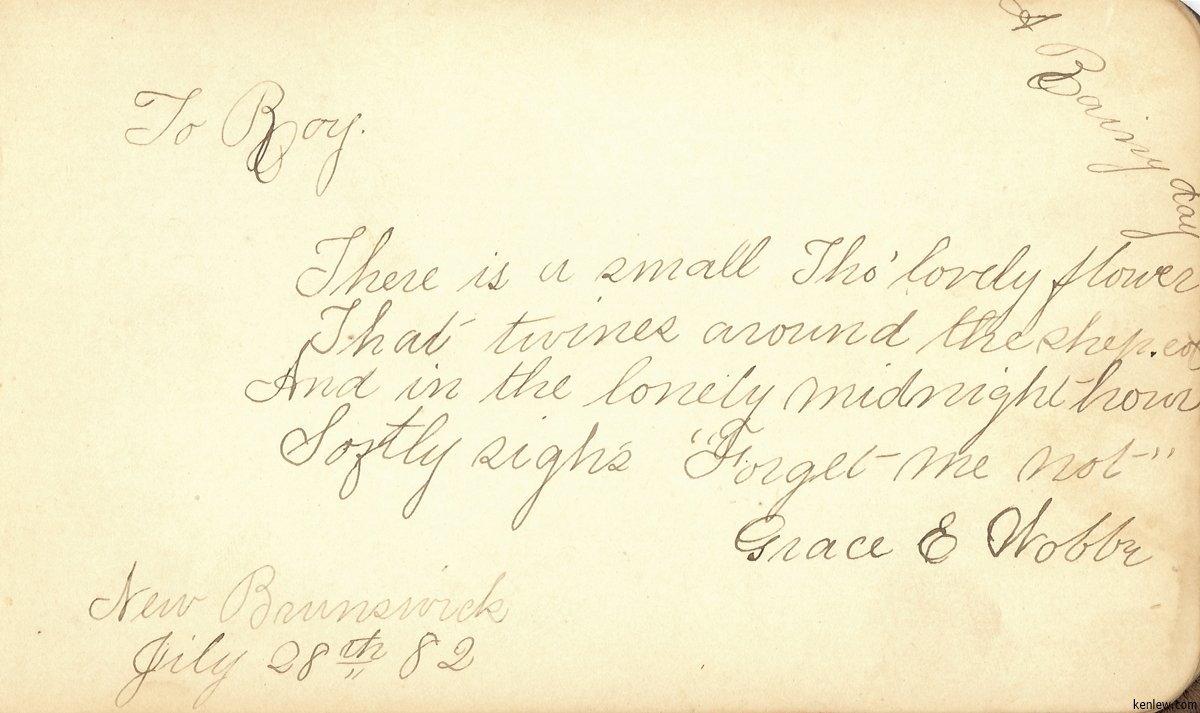 A Rainy day
To Roy.
There is a small Tho' lovely flower
That twines around the shep.cot
And in the lonely midnight hour
Softly sighs "Forget me not"
Grace E
New Brunswick
July 28th 82
kenlew.com